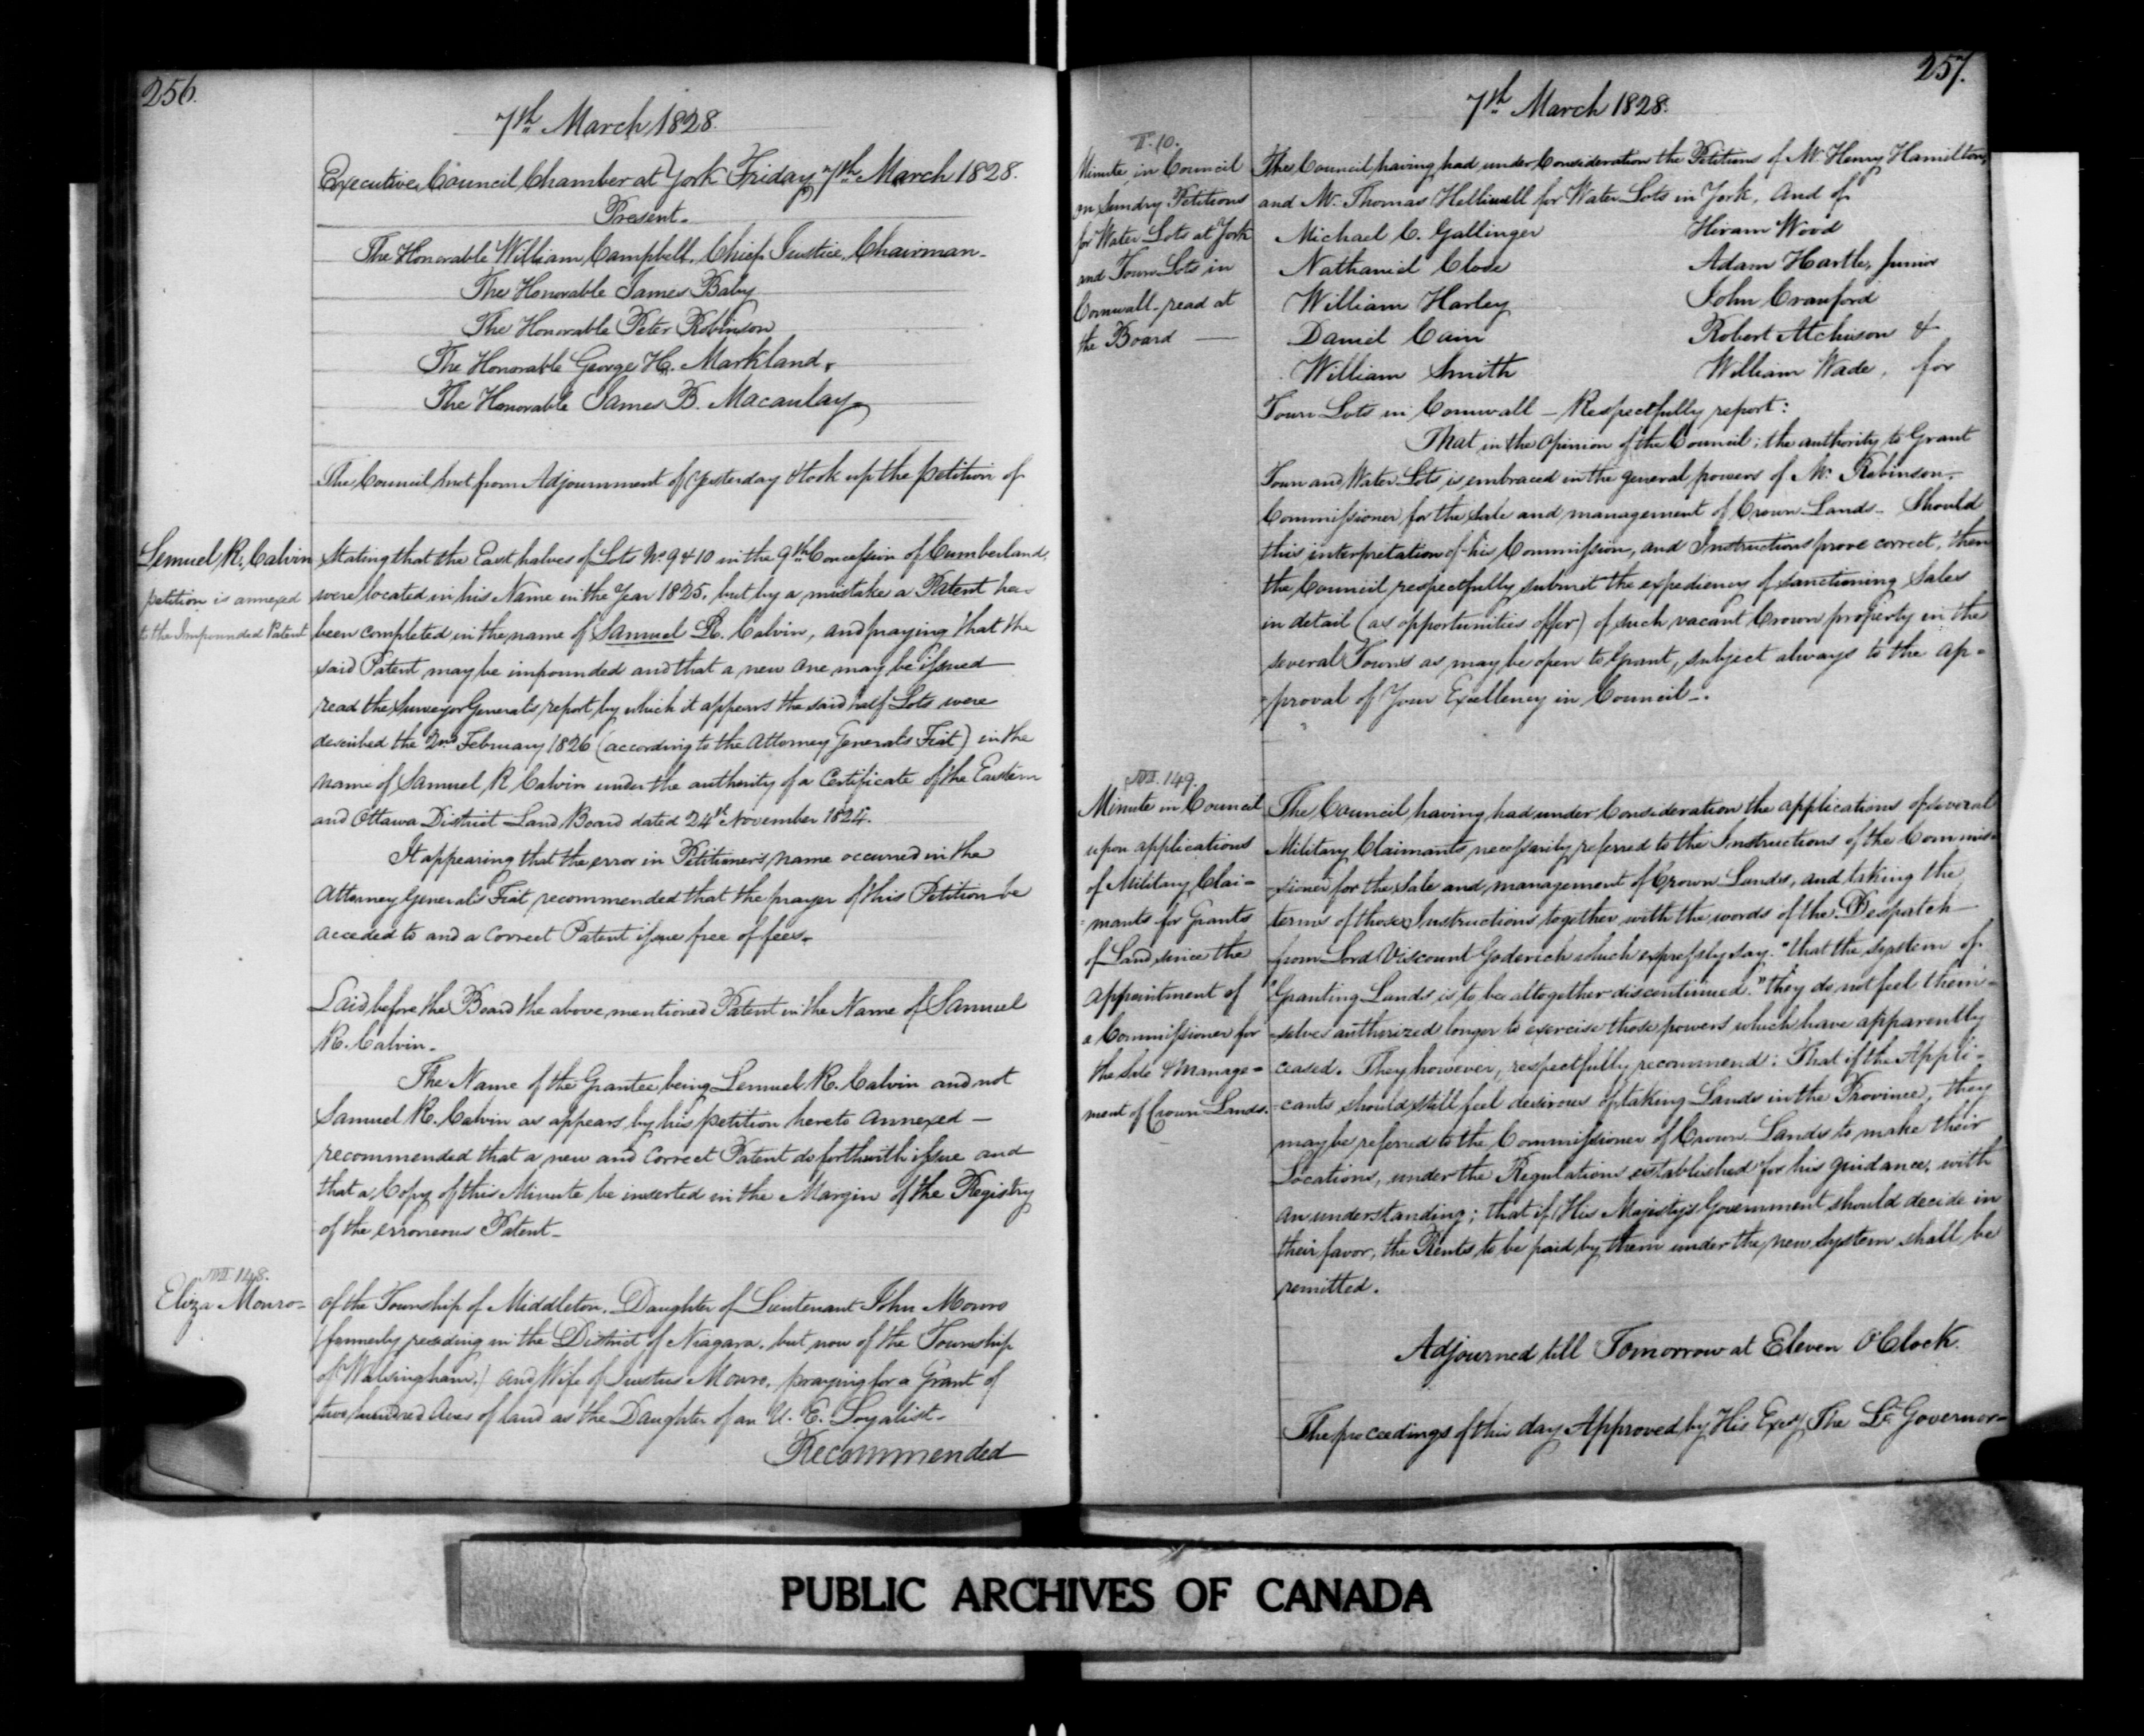 256.
7th March 1828.
Executive Council Chamber at York Friday 7th March 1828.
Present.
The Honorable William Campbell, Chief Justice, Chairman.
The Honorable James Baby
The Honorable Peter Robinson
The Honorable George H. Markland,
The Honorable James B. Macaulay
The Council met from Adjournment of yesterday & took up the petition of
Lemuel R. Calvin
petition is annexed
to the Impounded Patent
Stating that the East halves of Lots No. 9 & 10 in the 9th Concession of Cumberland,
were located in his Name in the Year 1825, but by a mistake a Patent has
been completed in the name of Samuel R. Calvin, and praying that the
said Patent may be impounded and that a new one may be issued
read the Surveyor General's report by which it appears the said half Lots were
described the 2nd February 1826 (according to the Attorney General's Fiat) in the
Name of Samuel R Calvin under the authority of a Certificate of the Eastern
and Ottawa District Land Board dated 24th November 1824.
It appearing that the error in Petitioner's name occurred in the
Attorney General's Fiat recommended that the prayer of this Petition be
acceded to and a correct Patent issue free of fees.
Laid before the Board the above mentioned Patent in the Name of Samuel
R. Calvin.
The Name of the Grantee being Lemuel R. Calvin and not
Samuel R. Calvin as appears by his petition hereto annexed –
recommended that a new and correct Patent do forthwith issue and
that a Copy of this Minute be inserted in the Margin of the Registry
of the erroneous Patent –
148.
Eliza Monro
of the Township of Middleton. Daughter of Lieutenant John Monro
(formerly residing in the District of Niagara, but now of the Township
of Walsingham,) and Wife of Justus Monro, praying for a Grant of
two hundred Acres of land as the Daughter of an U. E. Loyalist.
Recommended
257.
7th March 1828.
10.
Minute in Council
on Sundry Petitions
for Water Lots at York
and Town Lots in
Cornwall, read at
the Board —
The Council having had under Consideration the Petitions of Mr Henry Hamilton,
and Mr. Thomas Helliwell for Water Lots in York, And of
Michael C. Gallinger Hiram Wood
Nathaniel Close Adam Hartle, junior
William Harley John Crauford
Daniel Cain Robert Atchison &
William Smith William Wade, for
Town Lots in Cornwall – Respectfully report:
That in the Opinion of the Council; the authority to Grant
Town and Water Lots, is embraced in the general powers of Mr. Robinson.
Commissioner for the Sale and management of Crown Lands – Should
this interpretation of his Commission, and Instructions prove correct, then
the Council respectfully submit the expediency of sanctioning Sales
in detail (as opportunities offer) of such vacant Crown property in the
several Towns as may be open to Grant, subject always to the ap=
=proval of Your Excellency in Council –.
149.
Minute in Council
upon applications
of Military Clai=
=mants for Grants
of Land since the
appointment of
a Commissioner for
the Sale & Manage=
ment of Crown Lands.
The Council having had under Consideration the applications of several
Military Claimants, necessarily referred to the Instructions of the Commis=
=sioner for the Sale and management of Crown Lands, and taking the
terms of those Instructions together with the words of the Despatch
from Lord Viscount Goderich which expressly say "that the system of
"Granting Lands is to be altogether discontinued." they do not feel them=
=selves authorized longer to exercise those powers which have apparently
ceased. They however, respectfully recommend: That if the Appli=
=cants should still feel desirous of taking Lands in the Province, they
may be referred to the Commissioner of Crown Lands to make their
Locations, under the Regulations established for his guidance, with
an understanding; that if His Majesty's Government should decide in
their favor, the Rents to be paid by them under the new System shall be
remitted.
Adjourned till Tomorrow at Eleven O'Clock.
The proceedings of this day Approved by His Excy The Lt Governor
PUBLIC ARCHIVES OF CANADA